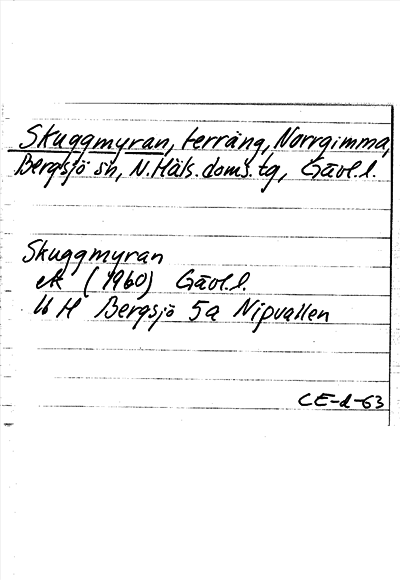 Skuggmyran, terräng, Norrgimma,
Bergsjö sn, N.Häls.doms.tg, Gävl.l.
Skuggmyran
ek (1960) Gävl.l.
16 H Bergsjö 5a Nipvallen
CE-d-63